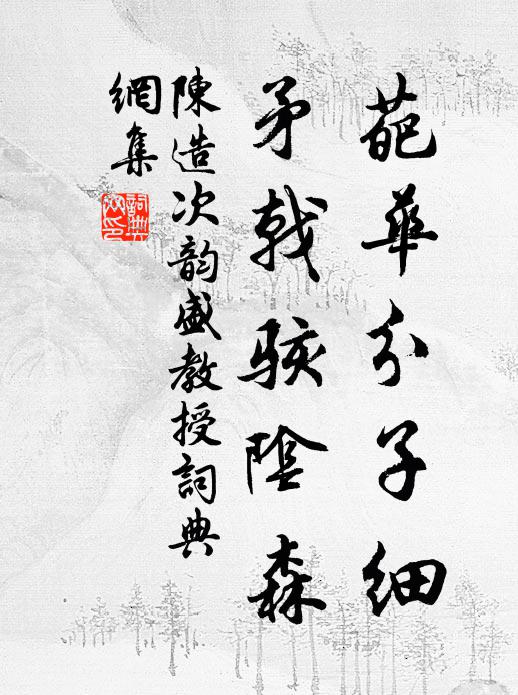 葩華分子細
矛戟駭陰森
陳造次韵盛教授詞典
網集
詞典